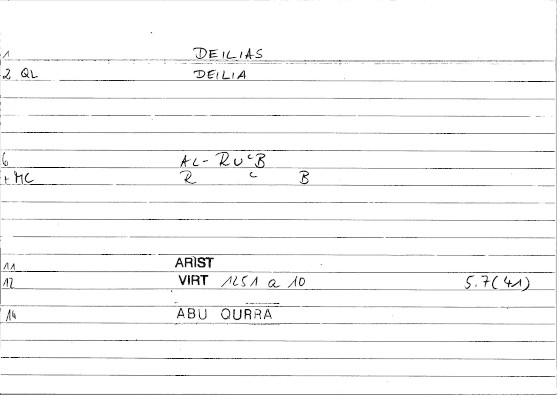 1 DEILIAS
2 QL DEILIA
6 AL-RUᶜB
+MC R ᶜ B
11 ARIST
12 VIRT 1251 a 10 5.7(41)
14 ABU QURRA